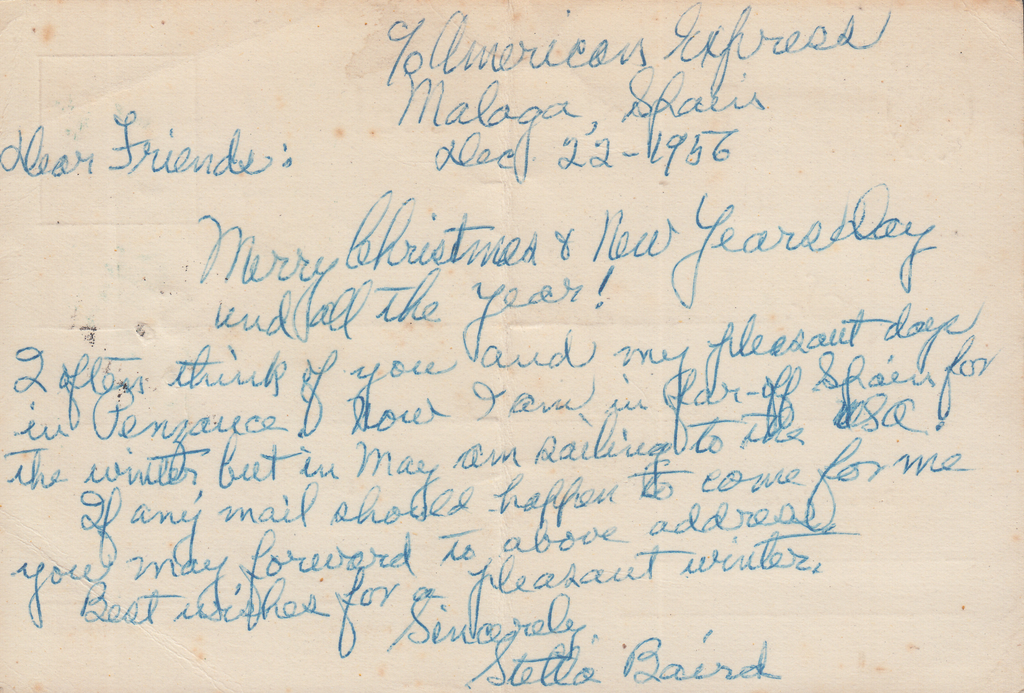 c/o American Express
Malaga, Spain
Dear Friends: Dec. 22-1956
Merry Christmas & New Years Day
and all the year!
I often think of you and my pleasant days
in Penzance. Now I am in far-off Spain for
the winter but in May am sailing to the USA.
If any mail should happen to come for me
you may forward to above address.
Best wishes for a pleasant winter.
Sincerely
Stella Baird